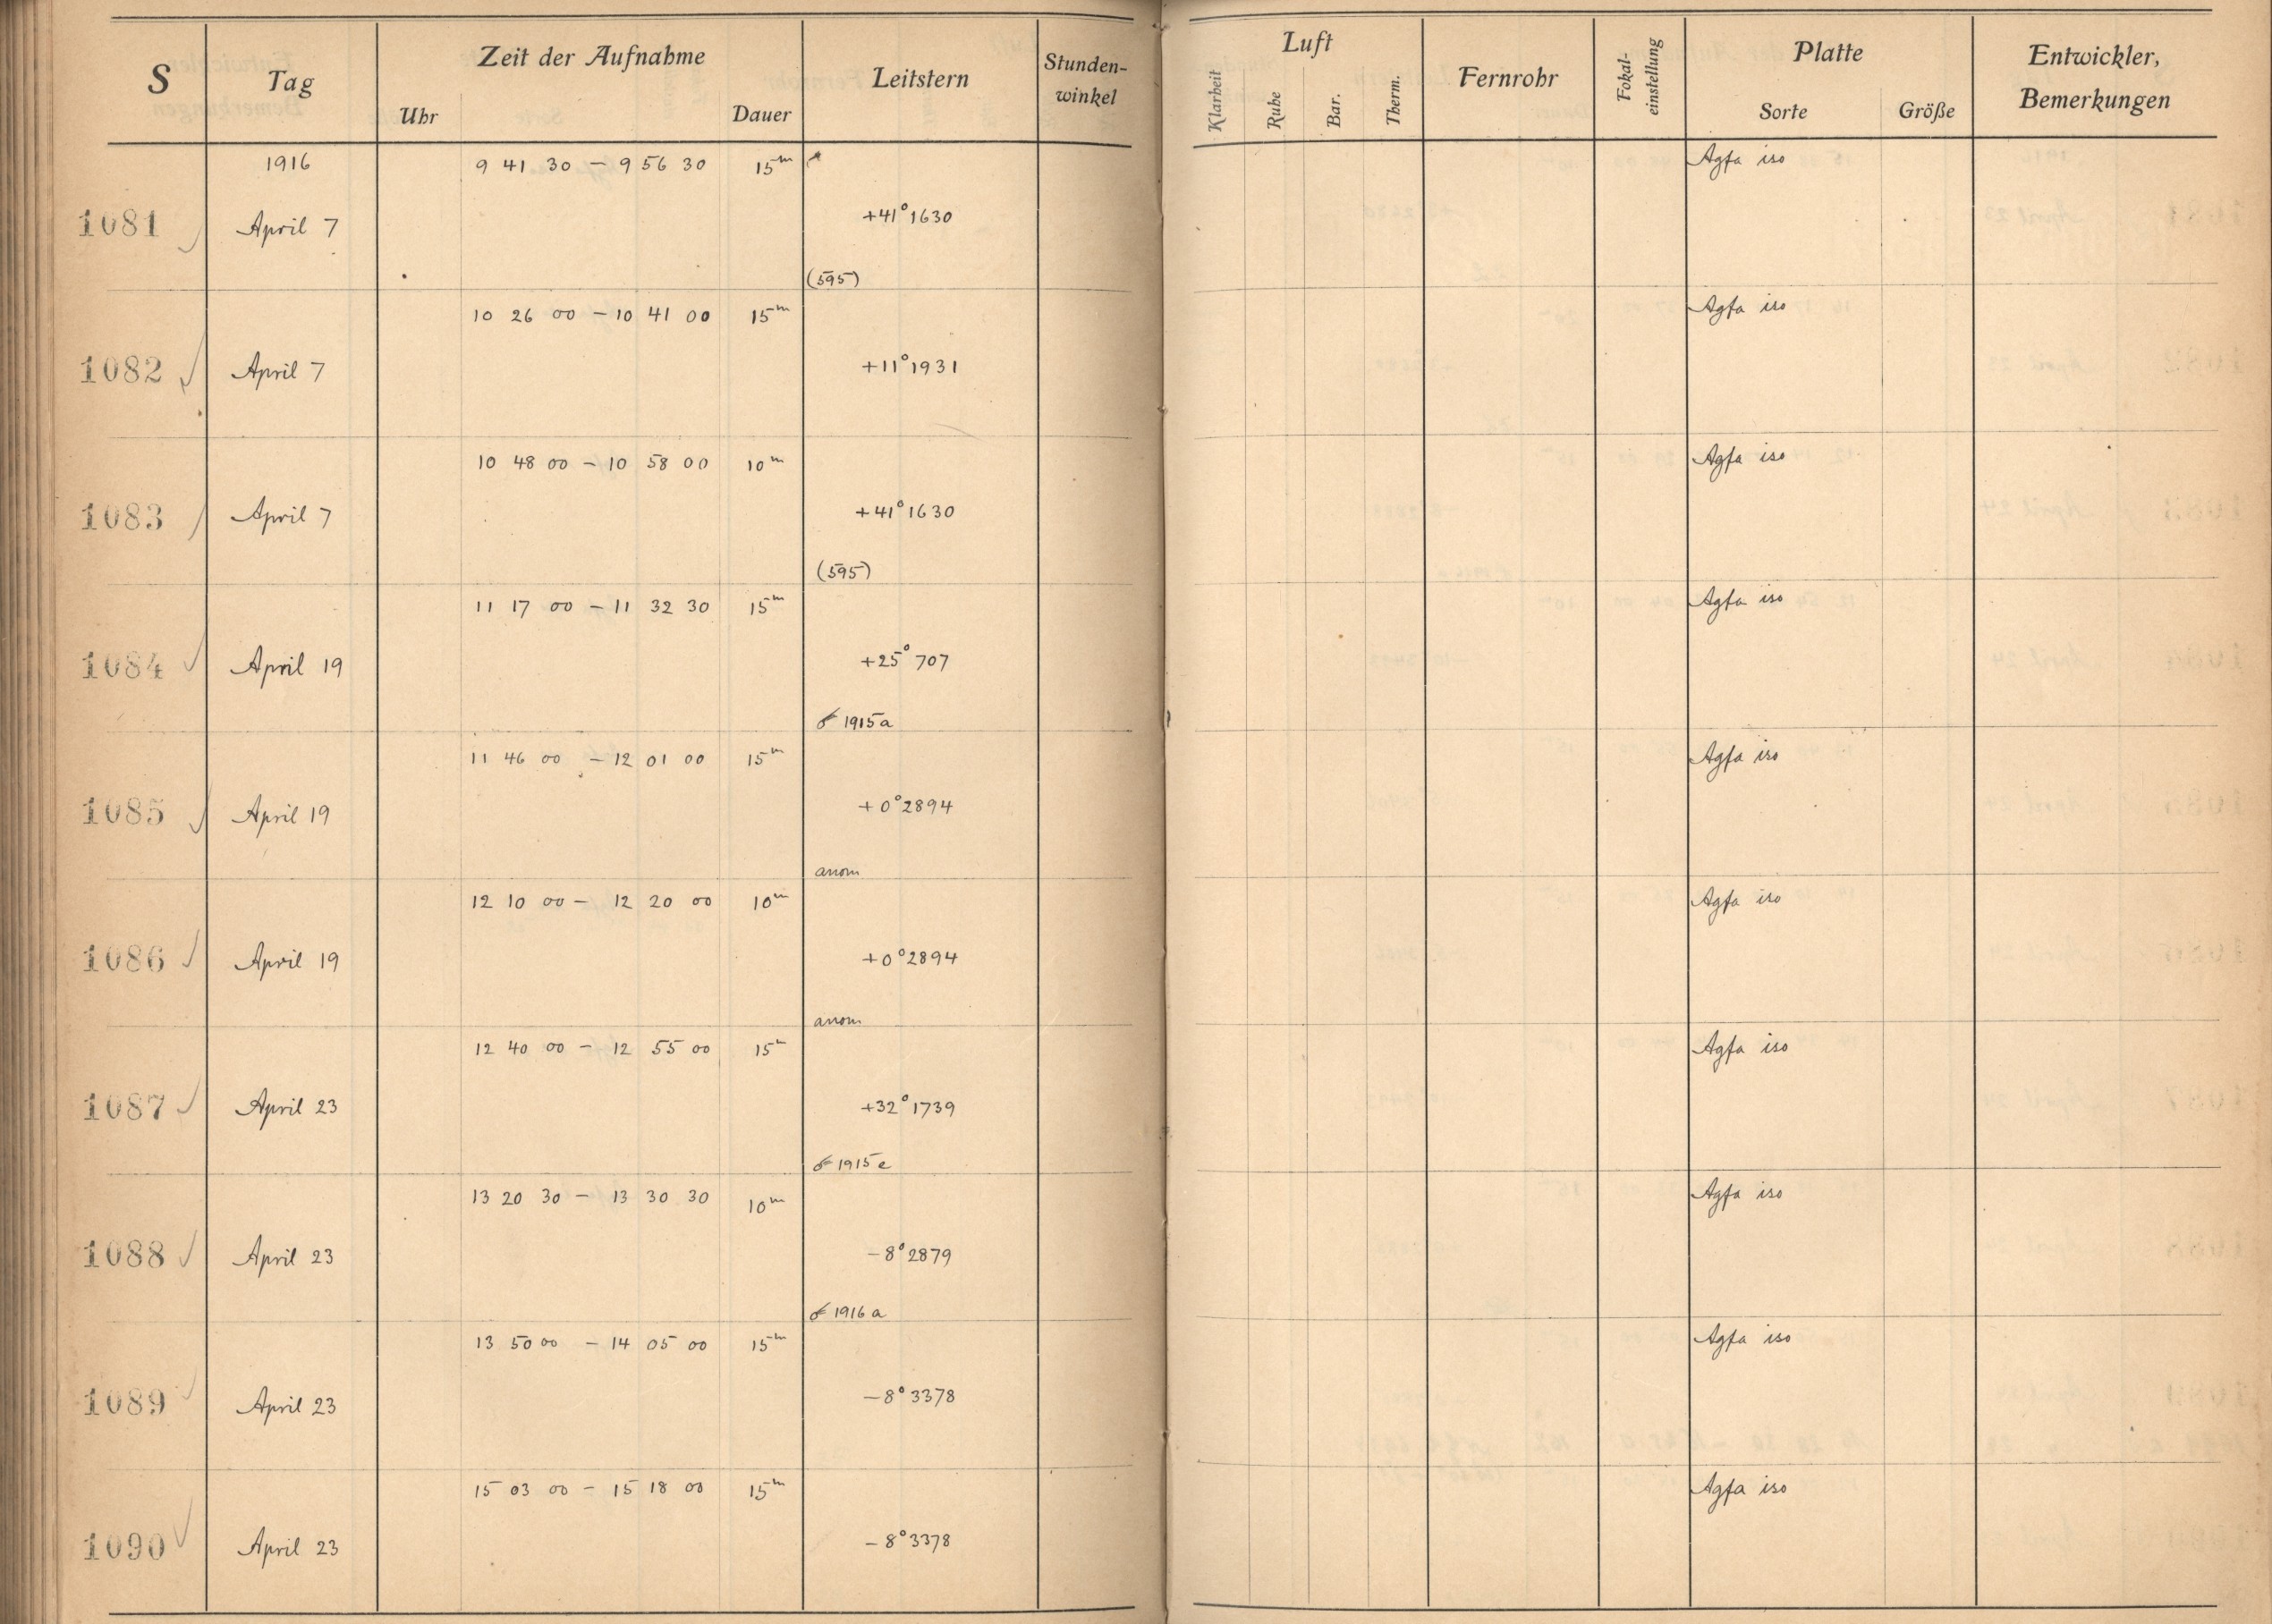 S Tag Zeit der Aufnahme Leitstern Stunden-winkel Luft Fernrohr Fokal-einstellung Platte Entwickler, Bemerkungen
Uhr Dauer Klarheit Ruhe Bar. Therm. Sorte Größe
1916 9 41 30 – 9 56 30 15m Agfa iso
1081 April 7 +41° 1630
(595)
10 26 00 – 10 41 00 15m Agfa iso
1082 April 7 +11° 1931
10 48 00 – 10 58 00 10m Agfa iso
1083 April 7 +41° 1630
(595)
11 17 00 – 11 32 30 15m Agfa iso
1084 April 19 +25° 707
1915a
11 46 00 – 12 01 00 15m Agfa iso
1085 April 19 +0° 2894
anom
12 10 00 – 12 20 00 10m Agfa iso
1086 April 19 +0° 2894
anom
12 40 00 – 12 55 00 15m Agfa iso
1087 April 23 +32° 1739
1915e
13 20 30 – 13 30 30 10m Agfa iso
1088 April 23 –8° 2879
1916a
13 50 00 – 14 05 00 15m Agfa iso
1089 April 23 –8° 3378
15 03 00 – 15 18 00 15m Agfa iso
1090 April 23 –8° 3378